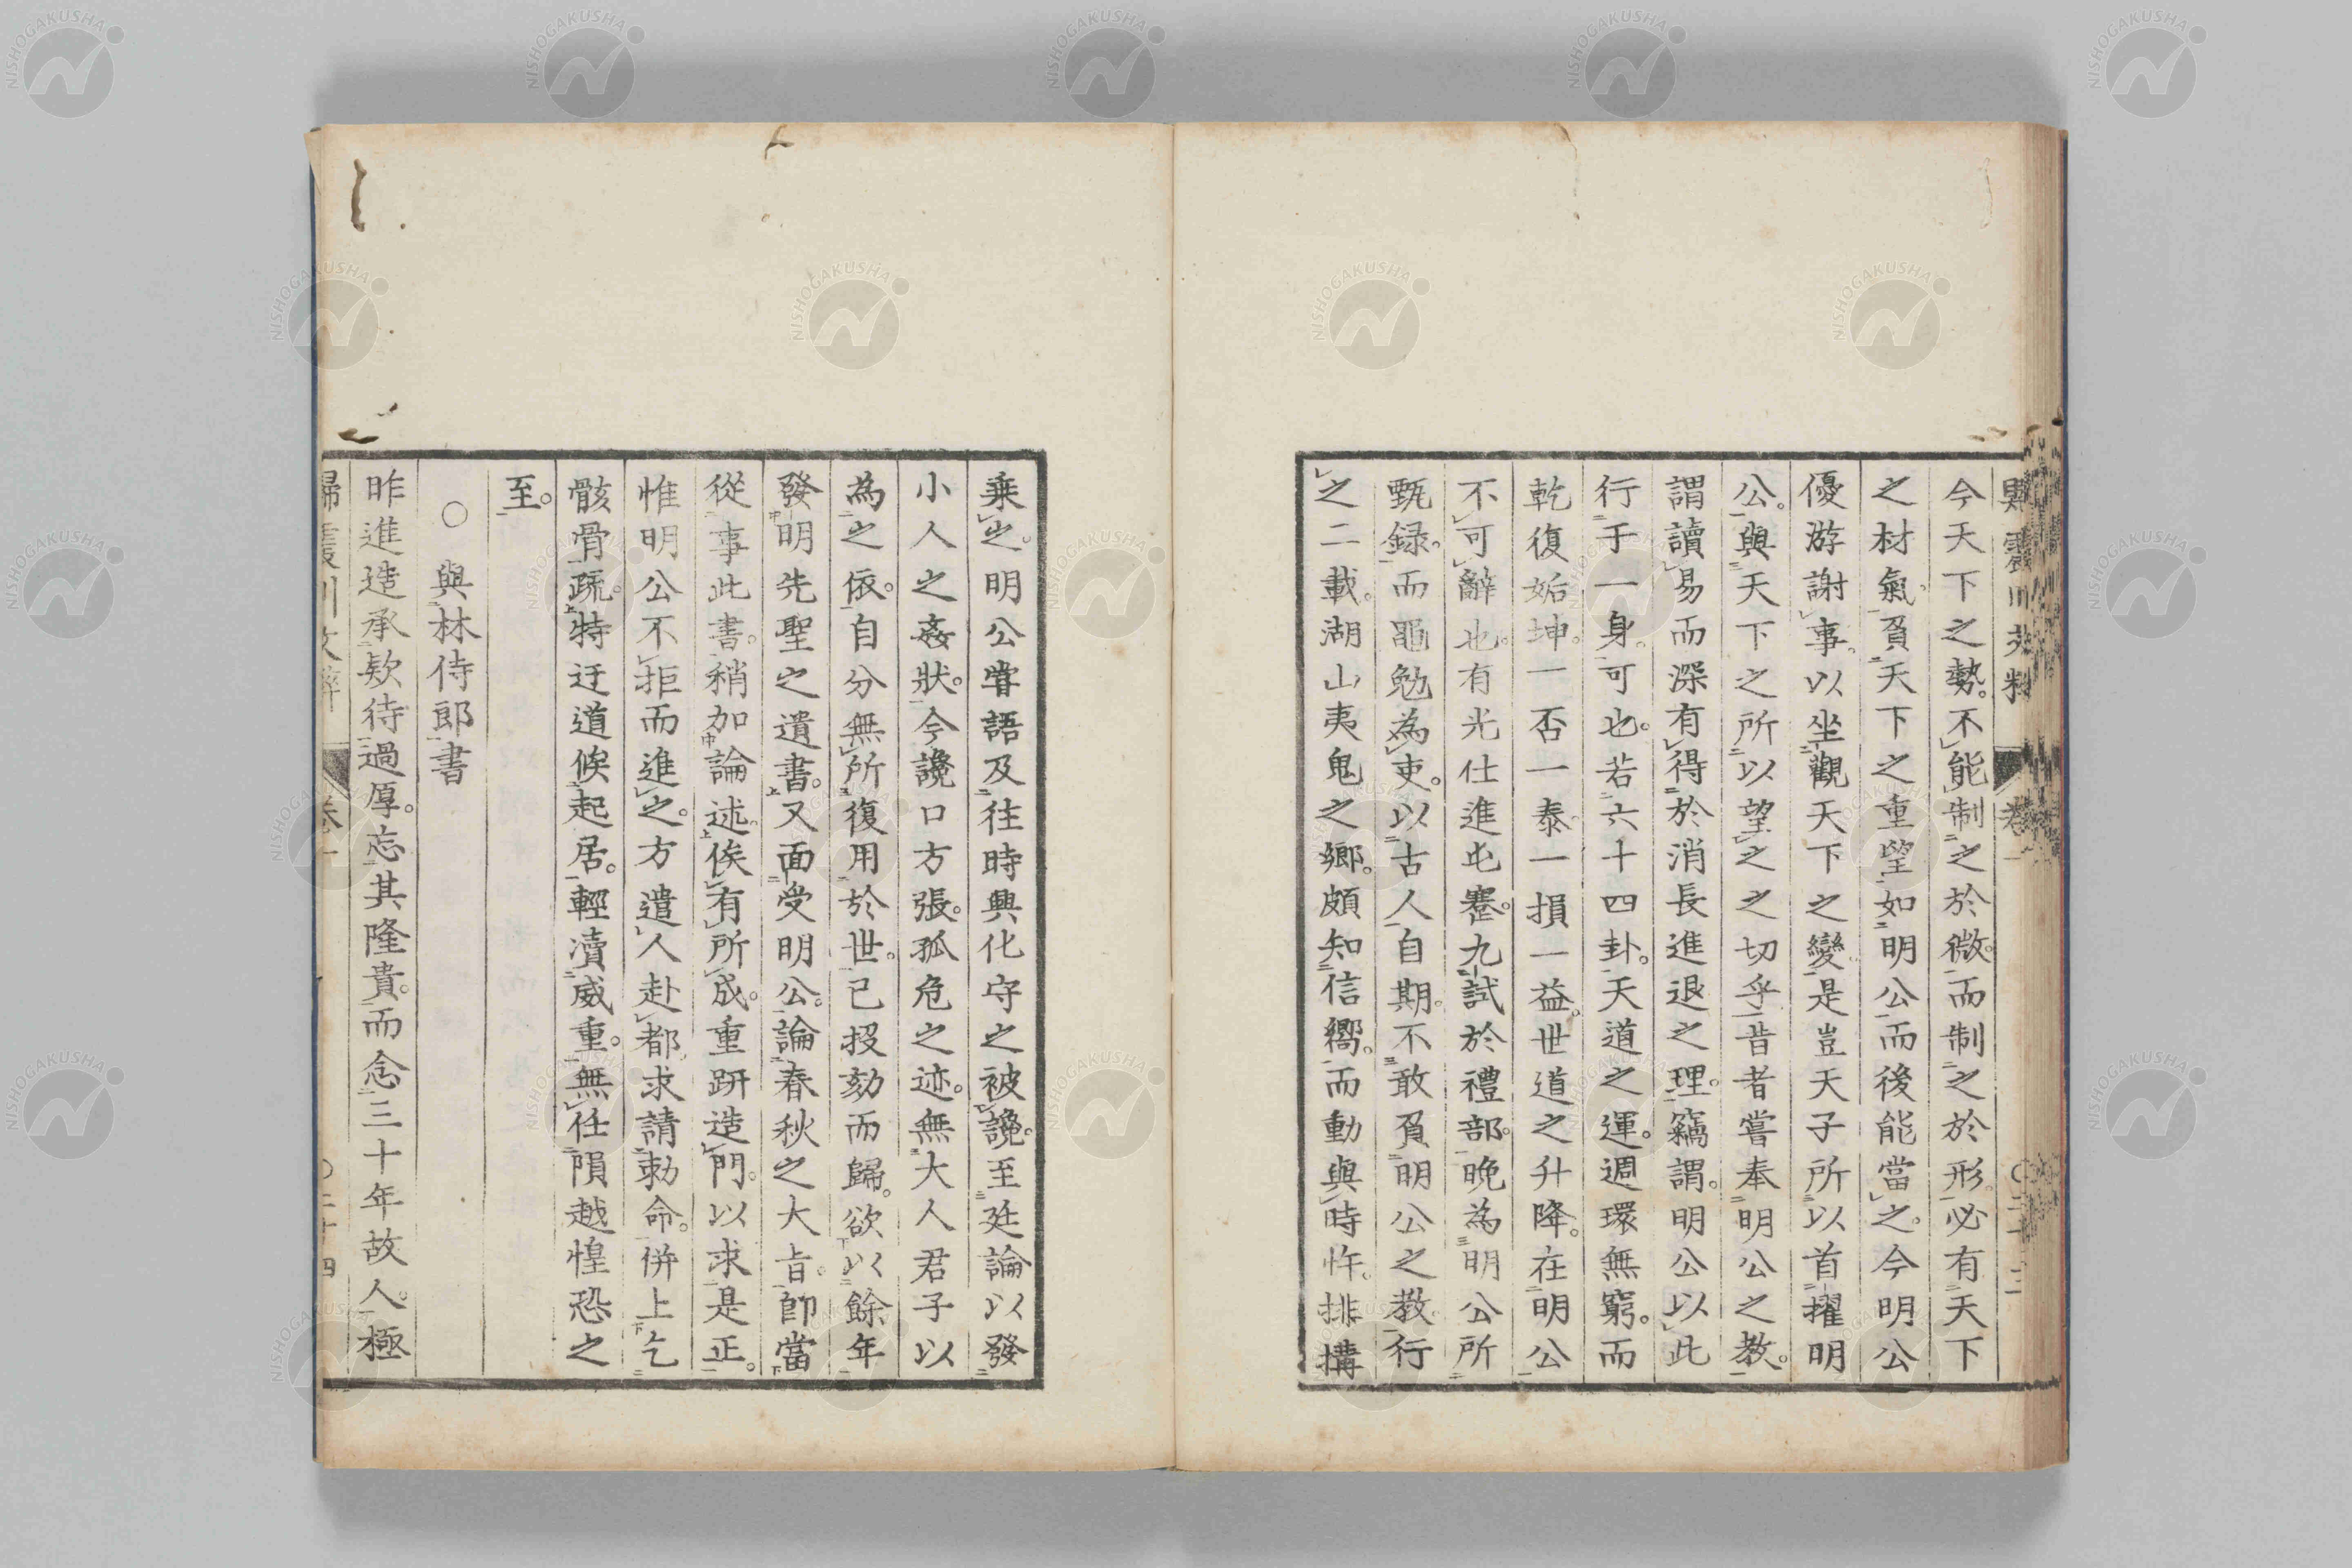 今天下之勢。不能制之於微。而制之於形。必有天下
之材氣。負天下之重望。如明公而後能當之。今明公
優游謝事。以坐觀天下之變。是豈天子所以首擢明
公。與天下之所以望之之切乎。昔者嘗奉明公之教。
謂讀易而深有得於消長進退之理。竊謂。明公以此
行于一身。可也。若六十四卦。天道之運。週環無窮。而
乾復姤坤。一否一泰。一損一益。世道之升降。在明公
不可辭也。有光仕進屯蹇。九試於禮部。晚為明公所
甄録。而黽勉為吏。以古人自期。不敢負明公之教。行
之二載。湖山夷鬼之鄉。頗知信嚮。而動與時忤。排搆
乘之。明公嘗語及往時興化守之被讒。至廷論以發
小人之姦狀。今讒口方張。孤危之迹。無大人君子以
為之依。自分無所復用於世。已投劾而歸。欲以餘年
發明先聖之遺書。又面受明公。論春秋之大旨。即當
從事此書。稍加論述。俟有所成。重趼造門。以求是正。
惟明公不拒而進之。方遣人赴都。求請勅命。併上乞
骸骨疏。特迂道候起居。輕瀆威重。無任隕越惶恐之
至。
○與林侍郎書
昨進造承欵待過厚。忘其隆貴。而念三十年故人。極
卷一